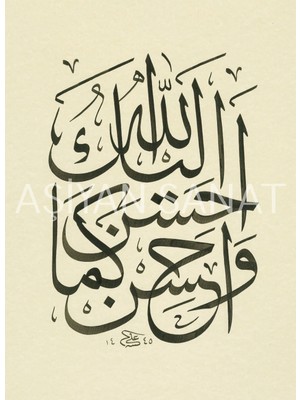 واحسن كما
احسن
الله اليك
AŞİYAN SANAT
١٤٤٥